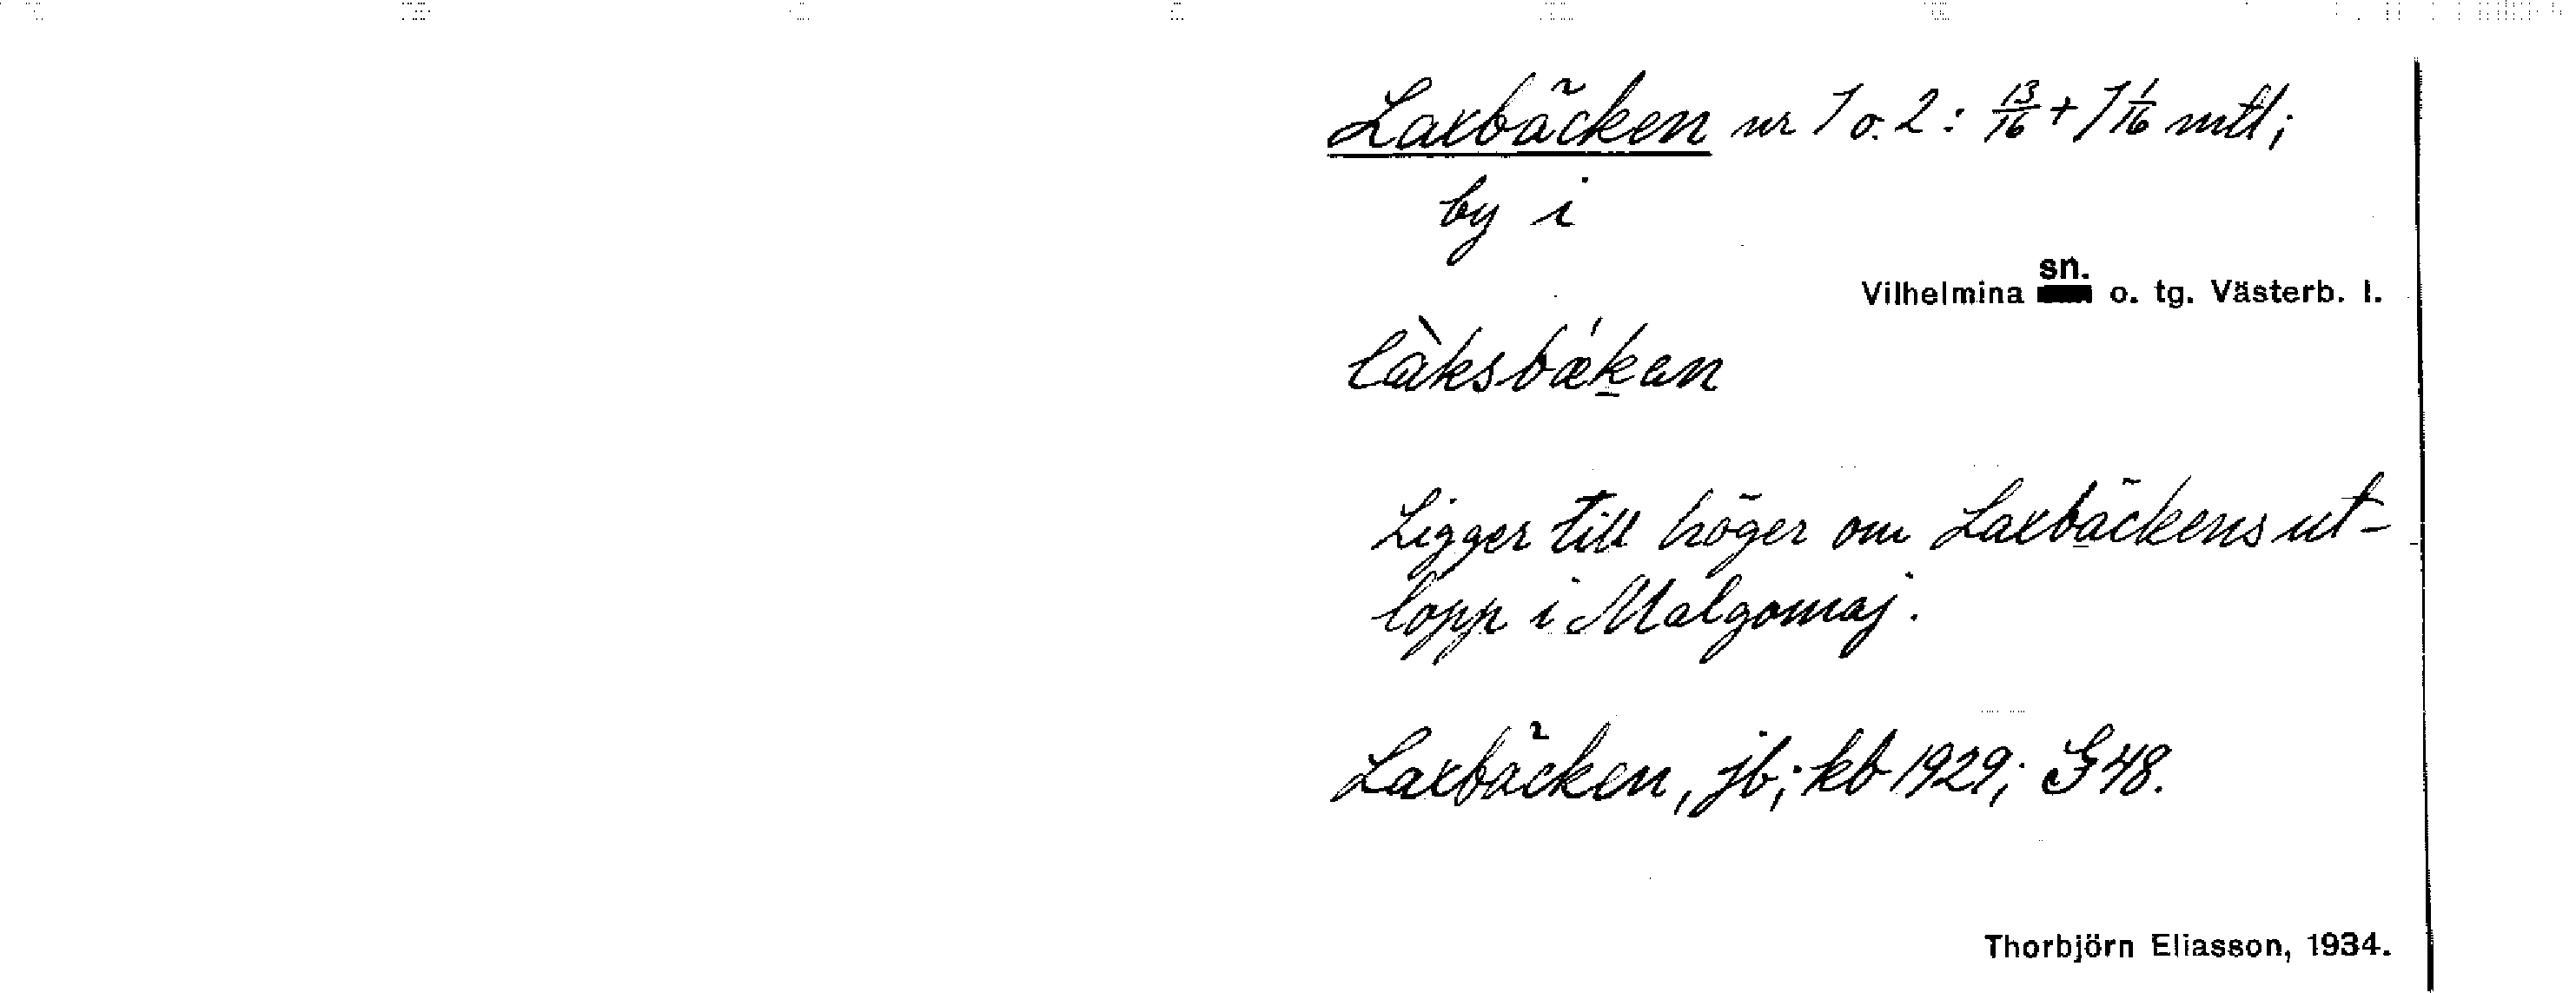 Laxbäcken nr 1 o. 2: 13/16 + 1 1/16 mtl;
by i
Vilhelmina sn. o. tg. Västerb. l.
làksbǽkan
Ligger till höger om Laxbäckens ut-
lopp i Malgomaj.
Laxbäcken, jb; kb 1929; G 48.
Thorbjörn Eliasson, 1934.